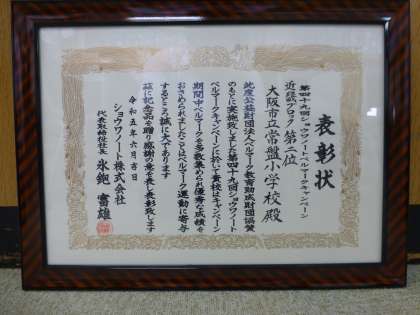 表彰状
第四十九回ショウワノートベルマークキャンペーン
近畿ブロック第二位
大阪市立常盤小学校殿
公益財団法人ベルマーク教育助成財団協賛
のもとに実施致しました第四十九回ショウワノート
ベルマークキャンペーンに於いて貴校はキャンペーン
期間中ベルマークを多数集められ優秀な成績を
おさめられましたことはベルマーク運動に寄与
するところ誠に大であります
茲に記念品を贈り感謝の意を表し表彰致します
令和五年六月吉日
ショウワノート株式会社
代表取締役社長 氷鉋富雄